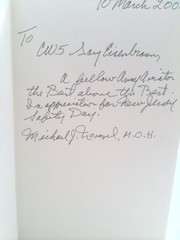 10 March 200
To
CW5 Gary Eisenbraun,
a fellow Army Aviator
the Best above the Best.
In appreciation for New Jersey
Safety Day.
Michael J. Novosel, M.O.H.